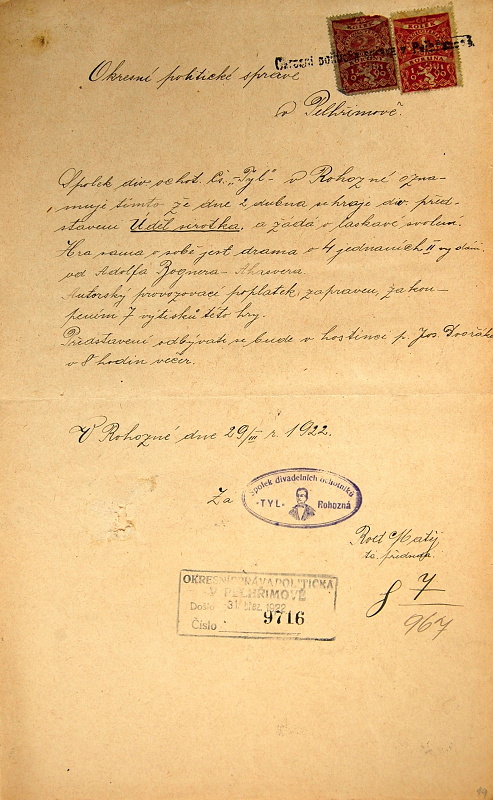 Č.S. KOLEK
KORUNA
Č.S. KOLEK
KORUNA
Okresní politická správa v Pelhřimově.
Okresní politické správě
v Pelhřimově.
Spolek div. ochot. "Tyl" v Rohozné ozna-
muje tímto že dne 2 dubna sehraje div. před-
stavení Úděl sirotka, a žádá o laskavé svolení.
Hra sama o sobě jest drama o 4 jednáních II vydání
od Adolfa Bognera-
Autorský provozovací poplatek, zapraven, zakou-
pením 7 výtisků této hry.
Představení odbývati se bude v hostinci p. Jos. Dvořáka
v 8 hodin večer.
V Rohozné dne 29/III r. 1922.
Za
Spolek divadelních ochotníků
-TYL- Rohozná
t. č. předseda
OKRESNÍ SPRÁVA POLITICKÁ
V PELHŘIMOVĚ
Došlo 31. břez. 1922
Číslo 9716
7
967